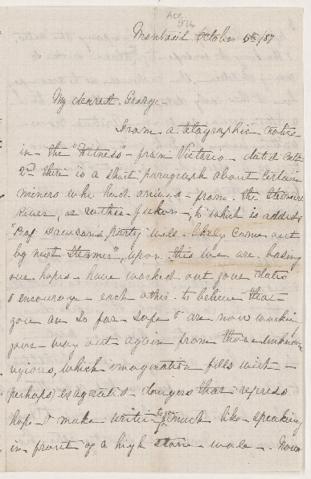 Acc 576
Montreal October 5th/87
My dearest George
From a telegraphic notice
in the "Witness" from Victoria dated Octr
2nd there is a short paragraph about certain
miners who had arrived from the Stickeen
River, as written of Yukon, to which is added
"Prof Dawson's party will likely come out
by next Steamer", upon this we are basing
our hopes & have worked out your dates
& encourage each other to believe that
you are so far safe & are now working
your way out again from those unknown
regions, which imagination fills with
perhaps exaggerated dangers that repress
hope & make writing to you much like speaking
in front of a high stone wall - Now